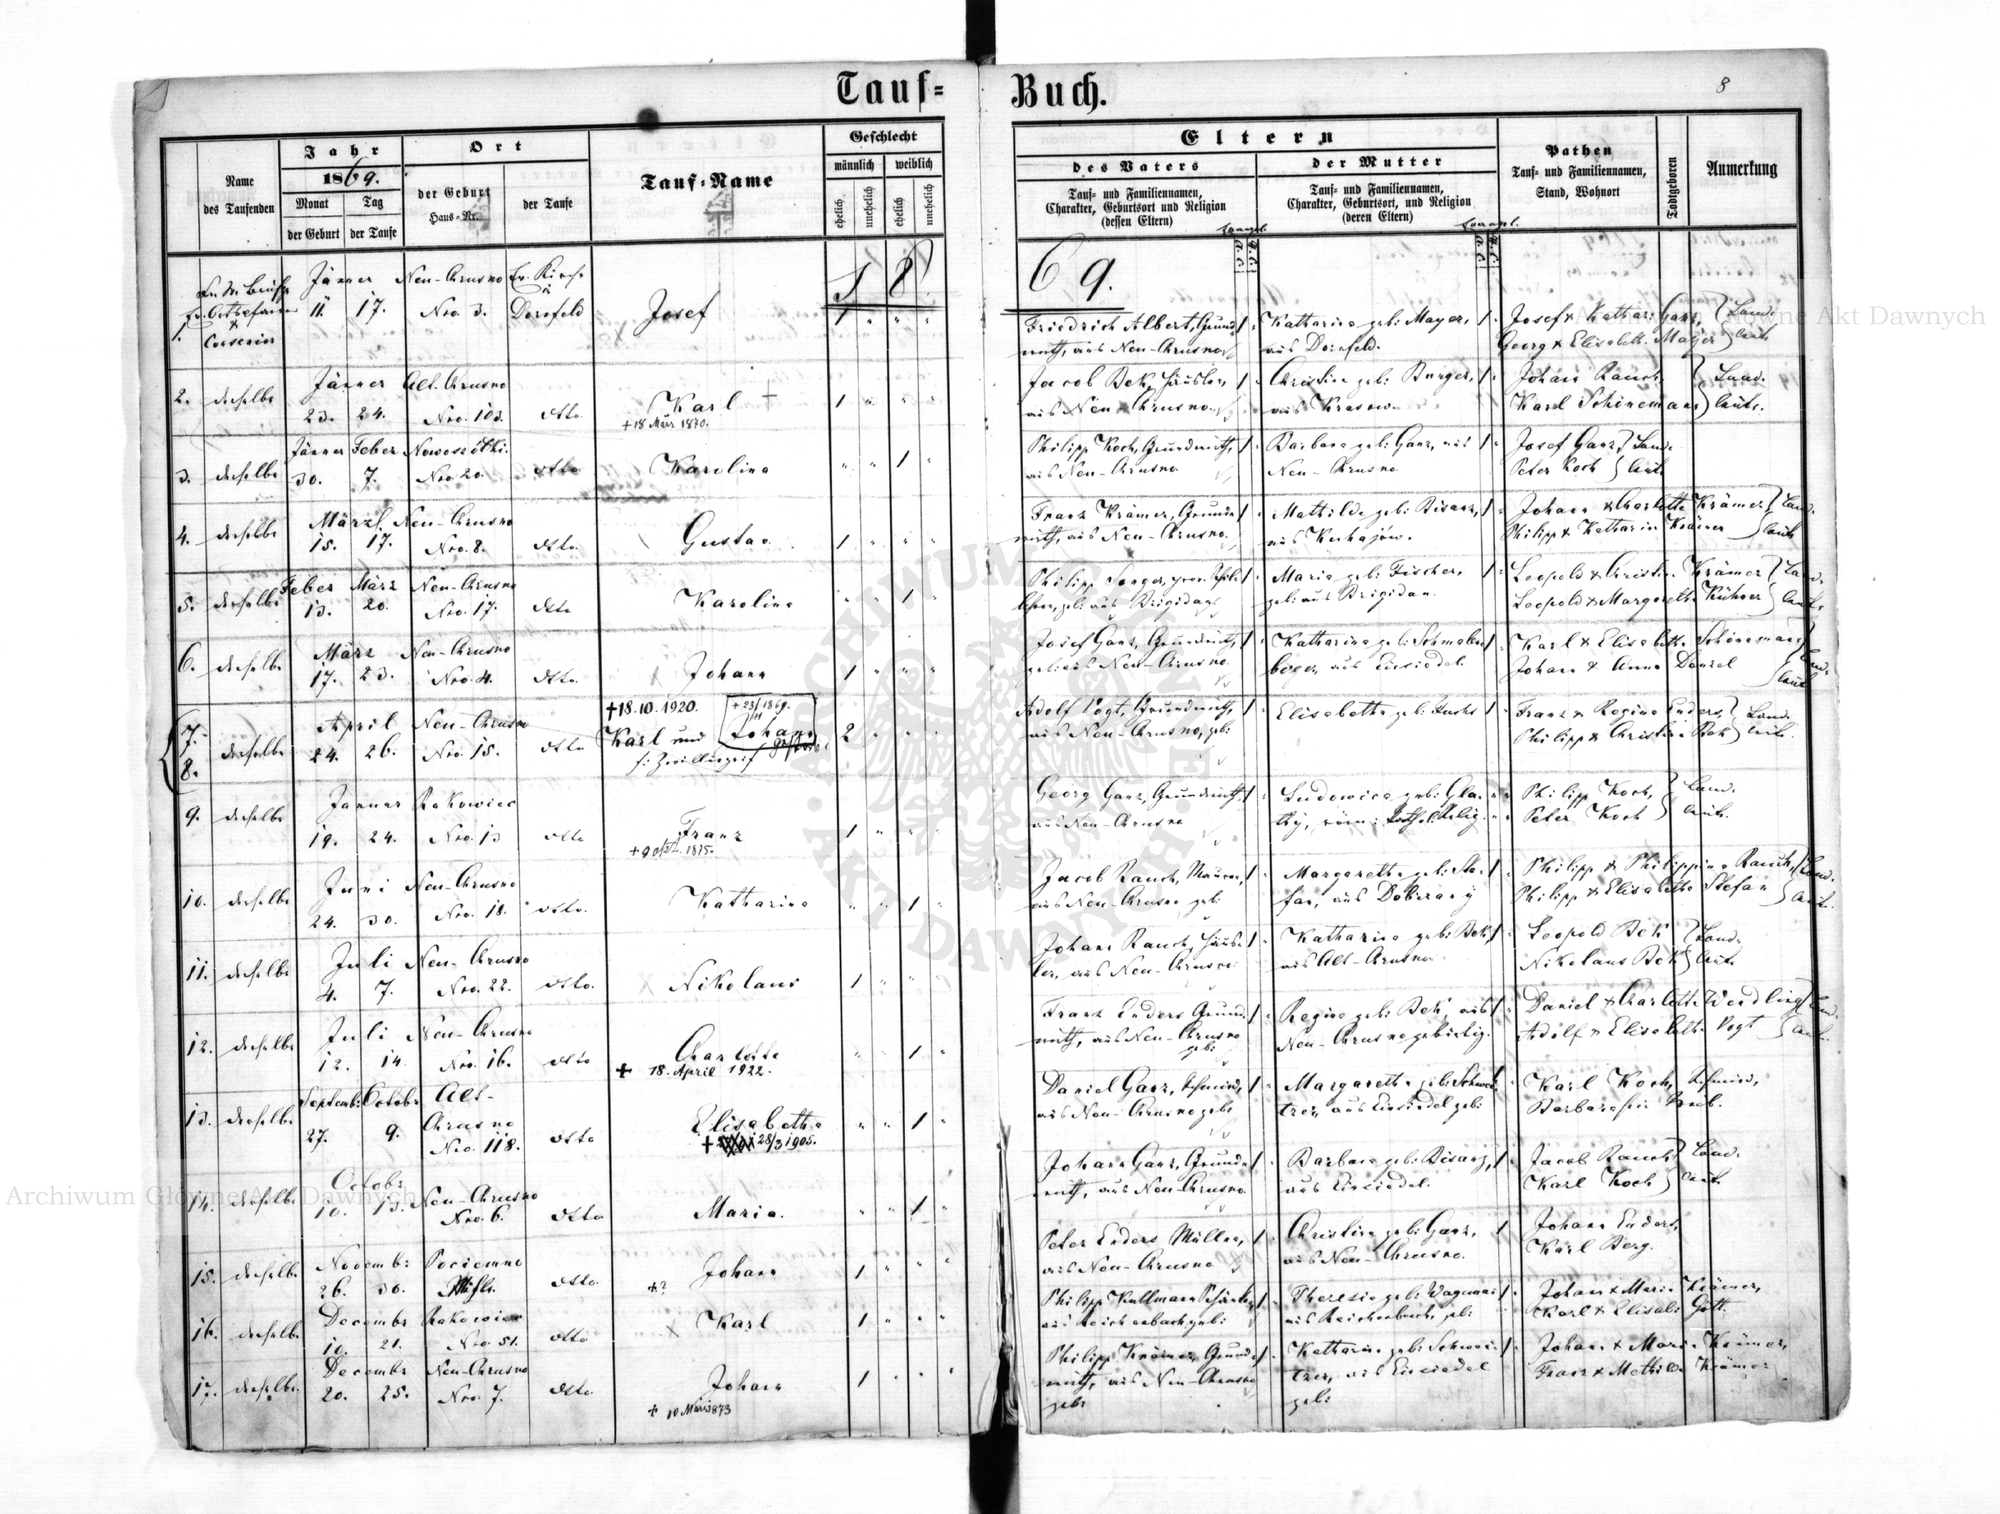 Tauf=
Buch.
8
Name
des Taufenden
Jahr
1869.
Monat
Tag
der Geburt
der Taufe
Ort
der Geburt
Haus=Nr.
der Taufe
Tauf=Name
Geschlecht
männlich
weiblich
ehelich
unehelich
ehelich
unehelich
Eltern
des Vaters
Tauf= und Familiennamen,
Charakter, Geburtsort und Religion
(dessen Eltern)
der Mutter
Tauf= und Familiennamen,
Charakter, Geburtsort, und Religion
(deren Eltern)
Pathen
Tauf= und Familiennamen,
Stand, Wohnort
Todtgeboren
Anmerkung
18
69.
1.
Jänner
11. 17.
Neu-Chrusno
Nro. 3.
Ev. Kirche
in
Dornfeld
Josef
1
Friedrich Albert, Grund=
wirth, aus Neu-Chrusno
Katharina geb: Mayer,
aus Dornfeld.
Josef & Kathari: Ganz,
Georg & Elisabeth Mayer
Land=
leute
2. derselbe
Jänner
23. 24.
Alt-Chrusno
Nro. 103.
dtto
Karl +
+18 März 1870.
1
Jacob Bek, Häusler,
aus Neu-Chrusno
Christine geb: Burger,
aus Krasow.
Johann Rauch,
Karl Schönemann
Land=
leute.
3. derselbe
Jänner Feber
30. 7.
Nowosiółki.
Nro. 20.
dtto
Karolina
1
Philipp Koch, Grundwirth,
aus Neu-Chrusno
Barbara geb: Ganz, aus
Neu-Chrusno.
Josef Ganz
Peter Koch
Land=
leute
4. derselbe
März
15. 17.
Neu-Chrusno
Nro. 8.
dtto.
Gustav.
1
Franz Krämer, Grund=
wirth, aus Neu-Chrusno.
Mathilde geb: Bisanz,
aus Kuhajów.
Johann & Charlotte Krämer
Philipp & Katharina Krämer
Land=
leute
5. derselbe
Feber März
13. 20.
Neu-Chrusno
Nro. 17.
dtto
Karolina
1
Maria geb: Fischer,
geb: aus Brigidau.
Leopold & Christin: Krämer
Leopold & Margareth: Kühner
Land=
leute
6. derselbe
März
17. 23.
Neu-Chrusno
Nro. 4.
dtto.
Johann
1
Josef Ganz, Grundwirth,
geb: aus Neu-Chrusno.
aus Einsiedel.
Karl & Elisabeth: Schönemann
Johann & Anna Danzel
Land=
leute
7.
8. derselbe
April
24. 26.
Neu-Chrusno
Nro. 15.
dtto
+18.10.1920.
Karl und Johann
2
Adolf Vogt, Grundwirth,
aus Neu-Chrusno, geb:
Elisabetha geb: Fuchs
Franz & Regina Enders,
Philipp & Christine Bek
Land=
leute.
9. derselbe
Januar
19. 24.
Rakowiec
Nro. 13
dtto
Franz
1
Georg Ganz, Grundwirth,
aus Neu-Chrusno
Philipp Koch,
Peter Koch
Land=
leute.
10. derselbe
Juni
24. 30.
Neu-Chrusno
Nro. 18.
dtto.
Katharina
1
Jacob Rauch, Maurer,
aus Neu-Chrusno geb:
Margaretha geb: Ste=
fan, aus Dobrzany
Philipp & Philippina Rauch,
Philipp & Elisabetha Stefan
Land=
leute.
11. derselbe
Juli
4. 7.
Neu-Chrusno
Nro. 22.
dtto.
Nikolaus
1
Johann Rauch, Häus=
ler, aus Neu-Chrusno
Katharina geb: Bek,
aus Alt-Chrusno.
Leopold Bek
Nikolaus Bek
Land=
leute
12. derselbe
Juli
12. 14.
Neu-Chrusno
Nro. 16.
dtto
Charlotte
+ 18. April 1922.
1
Franz Enders Grund=
wirth, aus Neu-Chrusno
geb:
Regina geb: Bek, aus
Neu-Chrusno gebürtig.
Daniel & Charlotte Wendling
Adolf & Elisabetha Vogt
Land=
leute.
13. derselbe
Septemb: Octobr
27. 9.
Alt-
Chrusno
Nro. 118.
dtto
Elisabetha
+ 28/3 1905.
1
Daniel Ganz, Schmied,
aus Neu-Chrusno geb:
Margaretha geb: Schwei=
tzer, aus Einsiedel geb:
Karl Koch, Schmied,
14. derselbe
Octobr
10. 13.
Neu-Chrusno
Nro. 6.
dtto
Maria.
1
Johann Ganz, Grund=
wirth, aus Neu-Chrusno
Barbara geb: Bisanz,
aus Einsiedel.
Jacob Rauch
Karl Koch
Land=
leute
15. derselbe
Novemb:
26. 30.
dtto
Johann
+?
1
Peter Enders Müller,
aus Neu-Chrusno
Christine geb: Ganz,
aus Neu-Chrusno.
Johann Enders,
Karl Berg.
16. derselbe
Decembr
10. 21.
Rakowiec
Nro. 51.
dtto
Karl
1
Philipp Kullmann
aus Reichenbach geb:
aus Reichenbach, geb:
Johann & Maria Krämer,
Karl & Elisab: Gött.
17. derselbe
Decembr
20. 25.
Neu-Chrusno
Nro. 7.
dtto
Johann
+ 10 März 1873
1
Philipp Krämer, Grund=
wirth, aus Neu-Chrusno
geb:
Katharina geb: Schwei=
tzer, aus Einsiedel
geb:
Johann & Maria Krämer,
Franz & Mathilde Krämer
ARCHIWUM GŁÓWNE AKT DAWNYCH
Archiwum Główne Akt Dawnych
Archiwum Główne Akt Dawnych